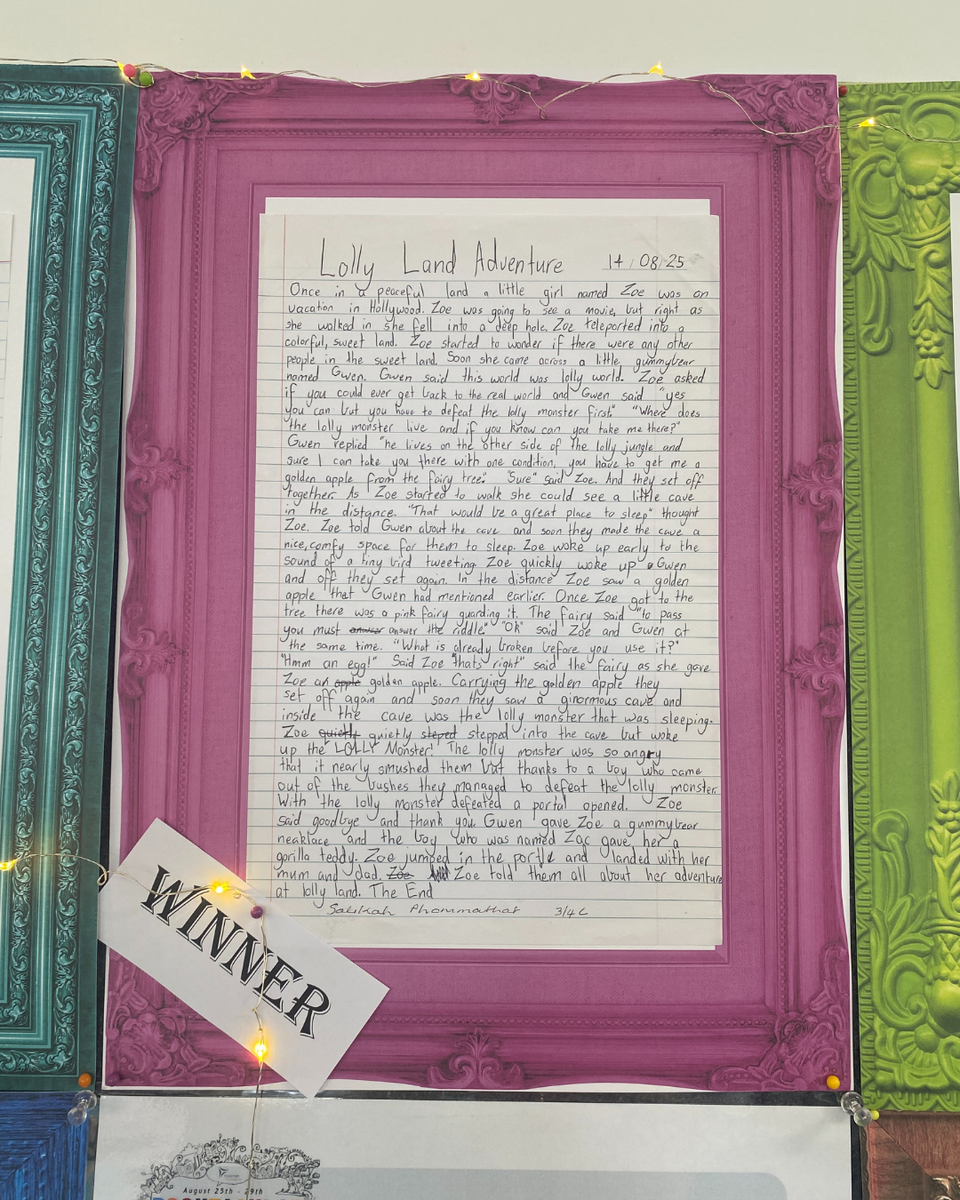 Lolly Land Adventure 14/08/25
Once in a peaceful land a little girl named Zoe was on
vacation in Hollywood. Zoe was going to see a movie, but right as
she walked in she fell into a deep hole. Zoe teleported into a
colorful, sweet land. Zoe started to wonder if there were any other
people in the sweet land. Soon she came across a little gummybear
named Gwen. Gwen said this world was lolly world. Zoe asked
if you could ever get back to the real world and Gwen said "yes
you can but you have to defeat the lolly monster first." "Where does
the lolly monster live and if you know can you take me there?"
Gwen replied "he lives on the other side of the lolly jungle and
sure I can take you there with one condition, you have to get me a
golden apple from the fairy tree." "Sure" said Zoe. And they set off
together. As Zoe started to walk she could see a little cave
in the distance. "That would be a great place to sleep" thought
Zoe. Zoe told Gwen about the cave and soon they made the cave a
nice, comfy space for them to sleep. Zoe woke up early to the
sound of a tiny bird tweeting. Zoe quickly woke up Gwen
and off they set again. In the distance Zoe saw a golden
apple that Gwen had mentioned earlier. Once Zoe got to the
tree there was a pink fairy guarding it. The fairy said "to pass
you must answer answer the riddle" "Ok" said Zoe and Gwen at
the same time. "What is already broken before you use it?"
"Hmm an egg!" Said Zoe "thats right" said the fairy as she gave
Zoe an apple golden apple. Carrying the golden apple they
set off again and soon they saw a ginormous cave and
inside the cave was the lolly monster that was sleeping.
Zoe quietly quietly steped stepped into the cave but woke
up the LOLLY Monster! The lolly monster was so angry
that it nearly smushed them but thanks to a boy who came
out of the bushes they managed to defeat the lolly monster.
With the lolly monster defeated a portal opened. Zoe
said goodbye and thank you. Gwen gave Zoe a gummybear
necklace and the boy who was named Zac gave her a
gorilla teddy. Zoe jumped in the and landed with her
mum and dad. Zoe Zoe told them all about her adventure
at lolly land. The End
Phommathat 3/4C
WINNER
August 25th - 29th